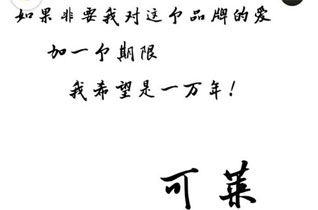 如果非要我对这个品牌的爱
加一个期限
我希望是一万年！
可莱